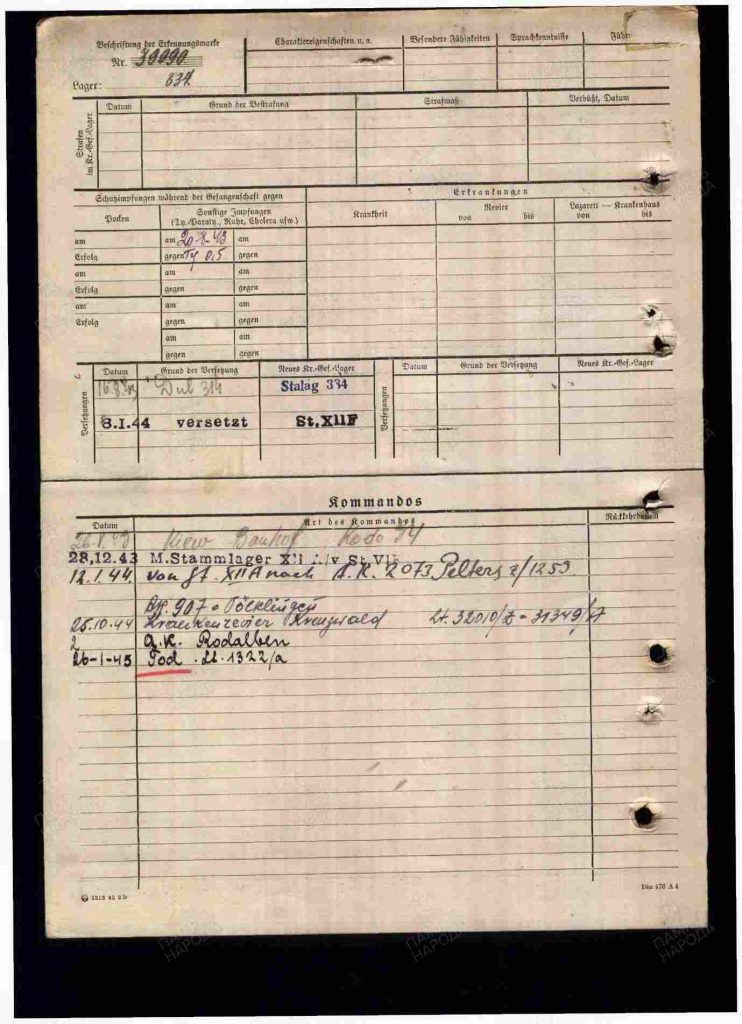 Beschriftung der Erkennungsmarke
Nr.
Lager: 334
Charaktereigenschaften u. a.
Besondere Fähigkeiten
Sprachkenntnisse
Führ
Strafen im Kr.-Gef.-Lager
Datum
Grund der Bestrafung
Strafmaß
Verbüßt, Datum
Schutzimpfungen während der Gefangenschaft gegen
Erkrankungen
Pocken
Sonstige Impfungen
(Ty.-Paraty., Ruhr, Cholera usw.)
Krankheit
Revier
von bis
Lazarett — Krankenhaus
von bis
am am 20.8.43 am
Erfolg gegen Ty 0,5 gegen
am am am
Erfolg gegen gegen
am am am
Erfolg gegen gegen
am am
gegen gegen
Versetzungen
Datum Grund der Versetzung Neues Kr.-Gef.-Lager
Dul 314 Stalag 334
8.I.44 versetzt St.XIIF
Versetzungen
Datum Grund der Versetzung Neues Kr.-Gef.-Lager
Kommandos
Datum Art des Kommandos Rückkehrdatum
Kiew Bauhof Kodo 74
28.12.43 M.Stammlager XII
12.1.44 von St. XIIA nach A.K. 2073 Pelters z/1259
907
25.10.44 Krankenrevier Kreuzwald Lt. 32010/Z - 31349/
2 A.K. Rodalben
26-1-45 Tod. Lt. 1322/a
3313 42 2D
Din 476 A 4
ПАМЯТЬ НАРОДА